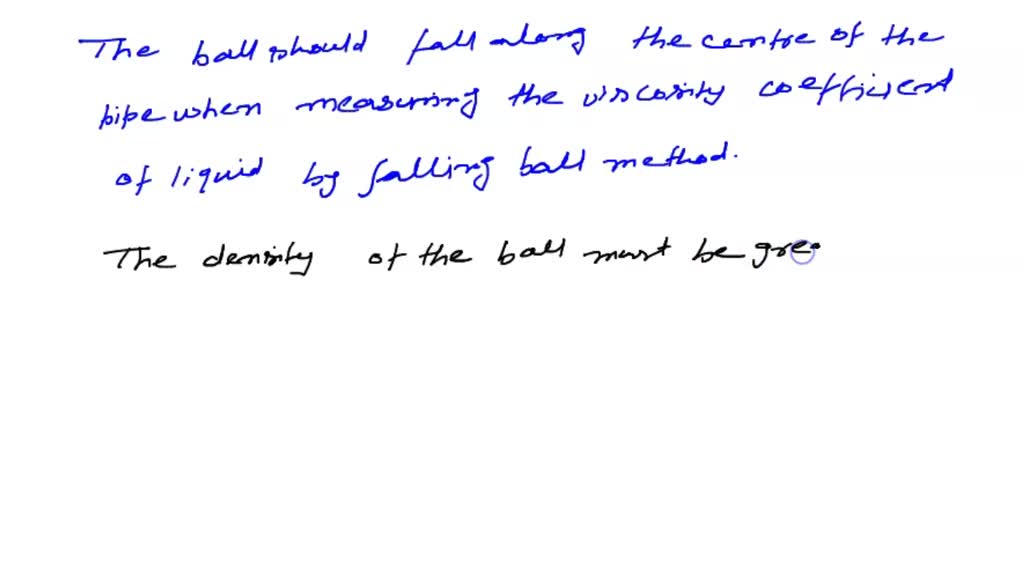 The ball should fall along the centre of the
pipe when measuring the viscosity coefficient
of liquid by falling ball method.
The density of the ball must be gre